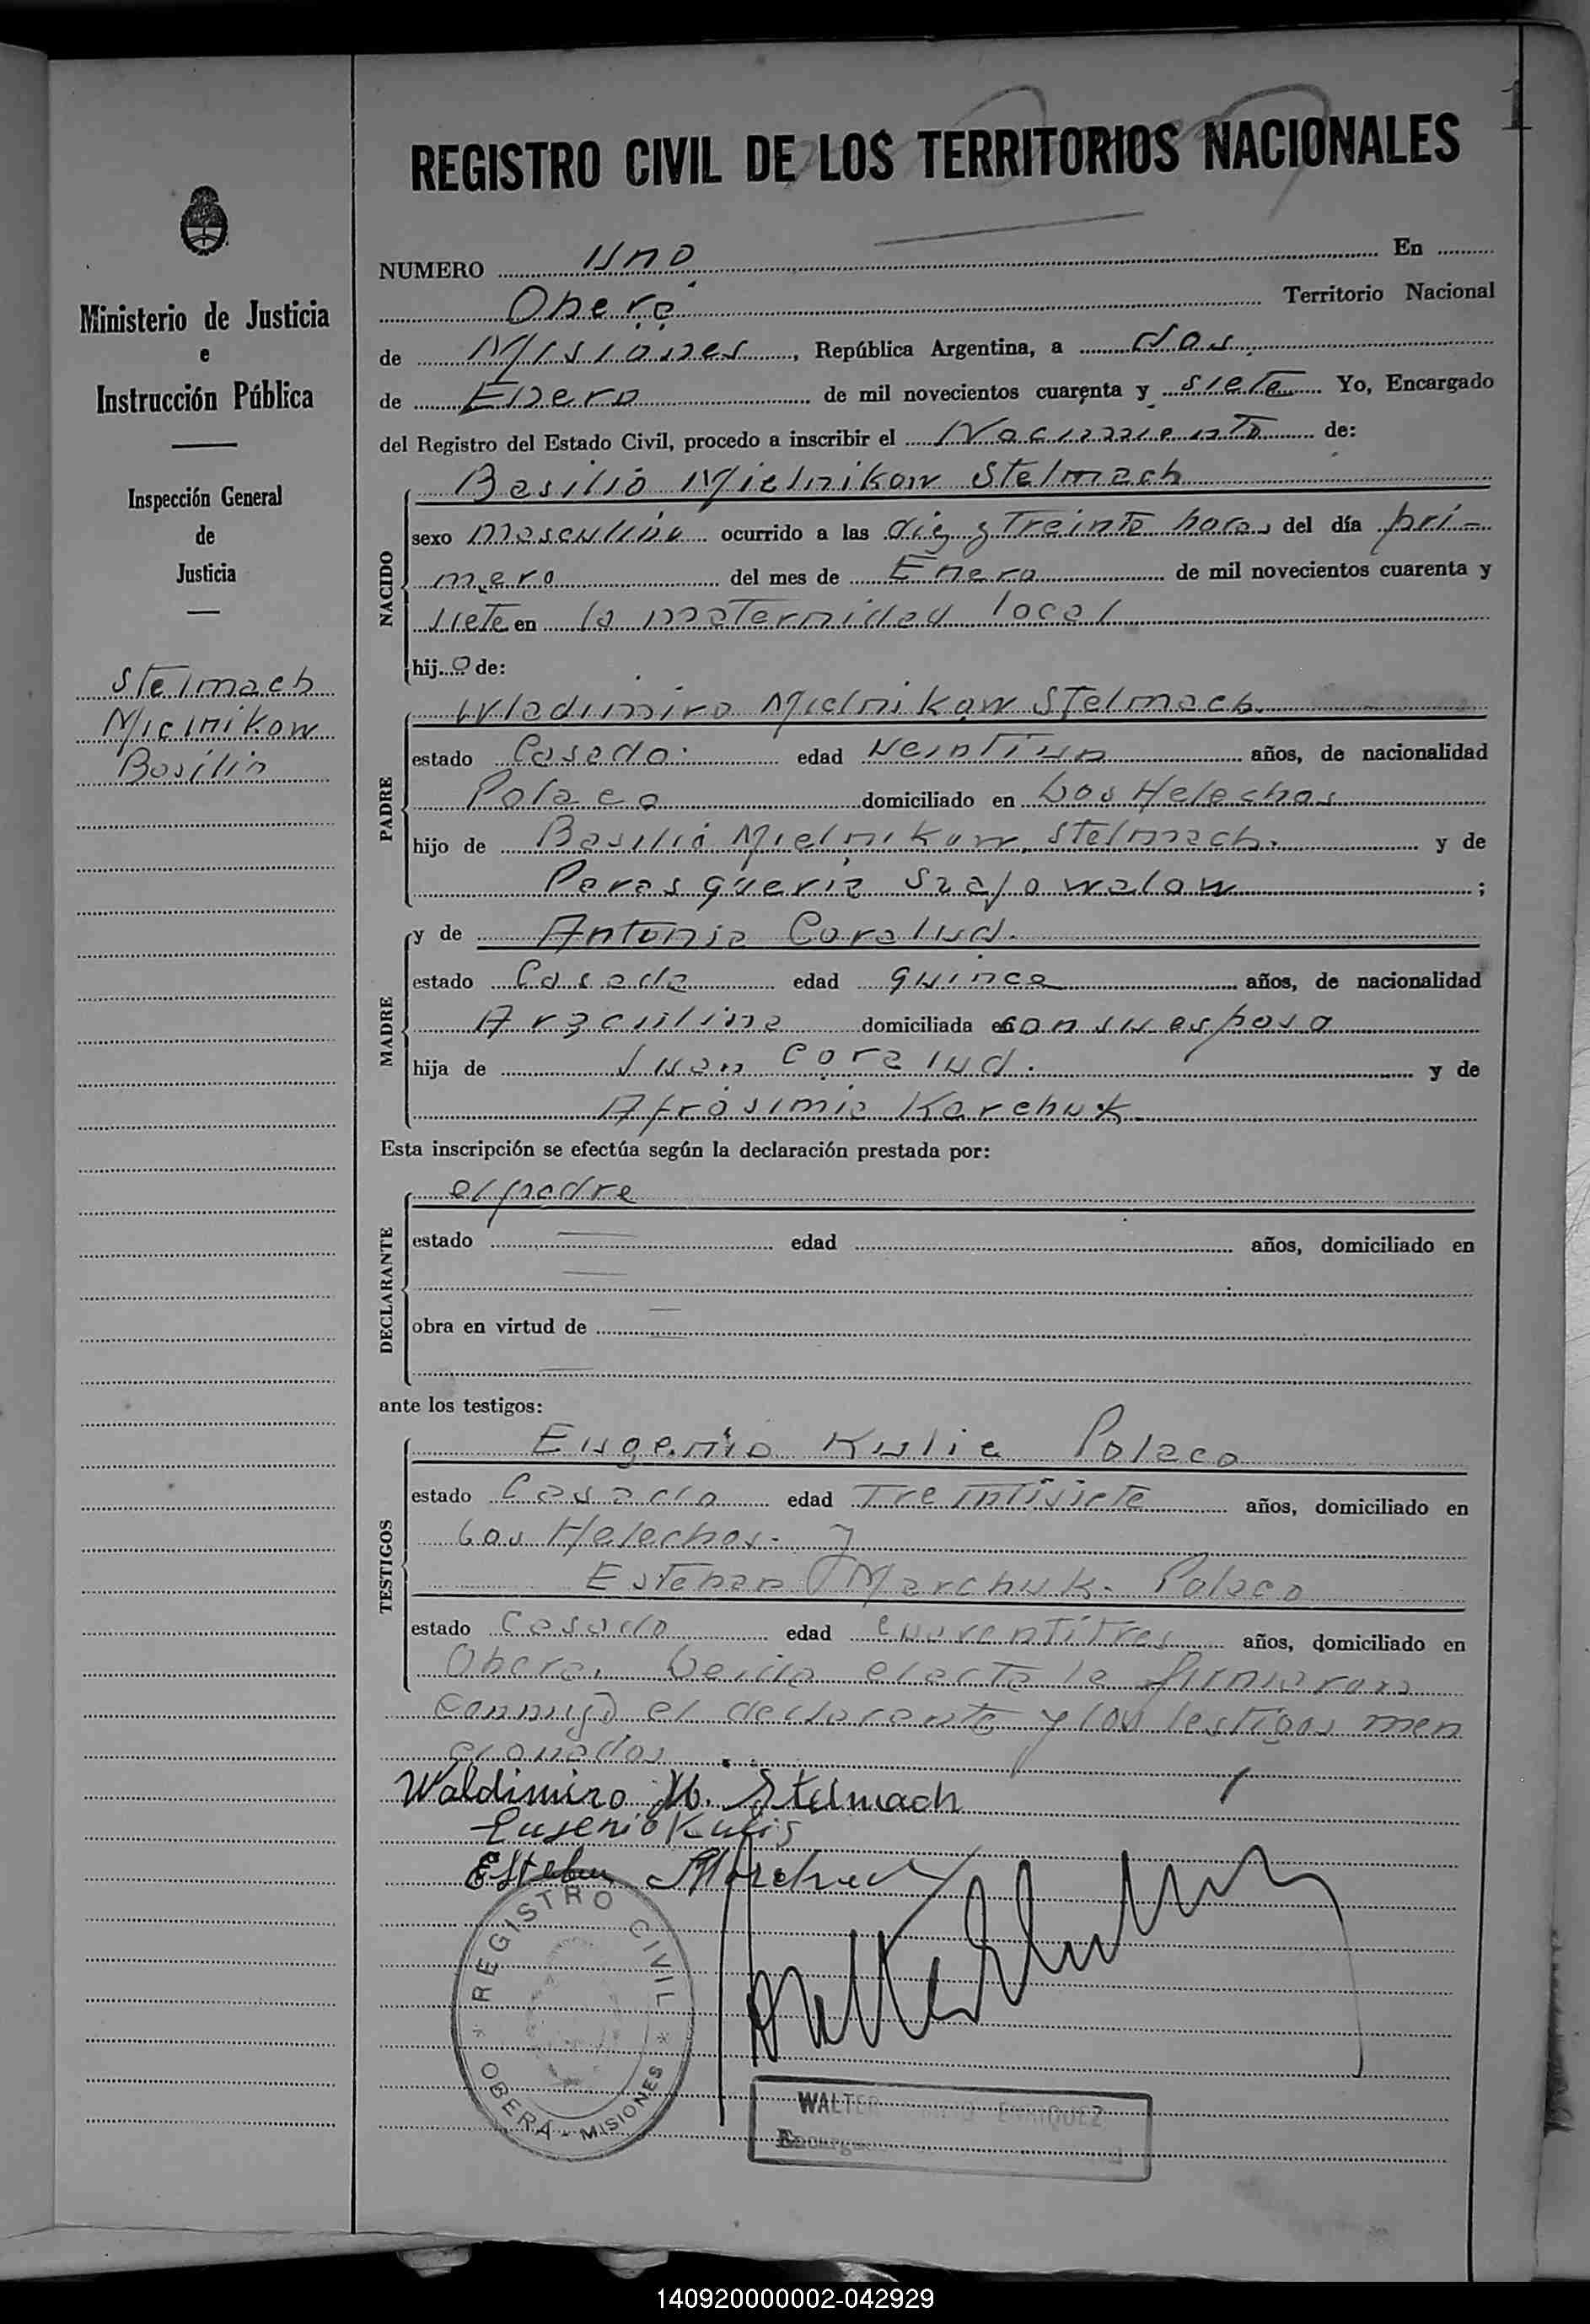 1
REGISTRO CIVIL DE LOS TERRITORIOS NACIONALES
Ministerio de Justicia
e
Instrucción Pública
Inspección General
de
Justicia
Stelmach
Mielnikow
Basilio
NUMERO Uno En
Oberá Territorio Nacional
de Misiones, República Argentina, a dos
de Enero de mil novecientos cuarenta y siete Yo, Encargado
del Registro del Estado Civil, procedo a inscribir el Nacimiento de:
NACIDO
Basilio Mielnikow Stelmach
sexo masculino ocurrido a las diez y treinta horas del día pri-
mero del mes de Enero de mil novecientos cuarenta y
siete en la maternidad local
hijo de:
PADRE
Wladimiro Mielnikow Stelmach.
estado Casado. edad veintiun años, de nacionalidad
Polaca domiciliado en Los Helechos
hijo de Basilio Mielnikow Stelmach. y de
Parasqueria Szafowalow ;
MADRE
y de Antonia Coralud.
estado Casada edad quince años, de nacionalidad
Argentina domiciliada en con su esposo
hija de Juan Coralud. y de
Afrosimia Karchuk.
Esta inscripción se efectúa según la declaración prestada por:
DECLARANTE
el padre
estado edad años, domiciliado en
obra en virtud de
ante los testigos:
TESTIGOS
Eugenio Kulic Polaco
estado Casado edad treintisiete años, domiciliado en
Los Helechos. y
Esteban Marchuk. Polaco
estado Casado edad cuarentitres años, domiciliado en
Oberá. Leida el acta la firmaron
conmigo el declarante y los testigos men
cionados.
Waldimiro M. Stelmach
Eugenio Kulis
Esteban Marchuk
REGISTRO CIVIL
* OBERA - MISIONES *
WALTER ENRIQUEZ
140920000002-042929